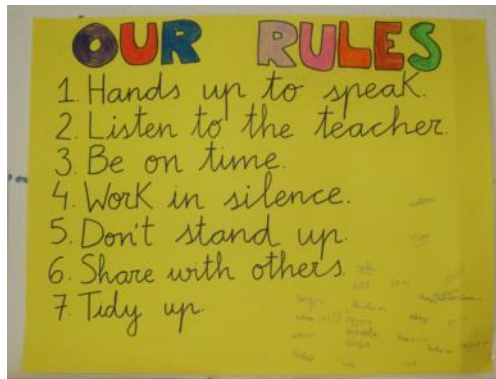 OUR RULES
1. Hands up to speak.
2. Listen to the teacher.
3. Be on time.
4. Work in silence.
5. Don't stand up.
6. Share with others.
7. Tidy up.